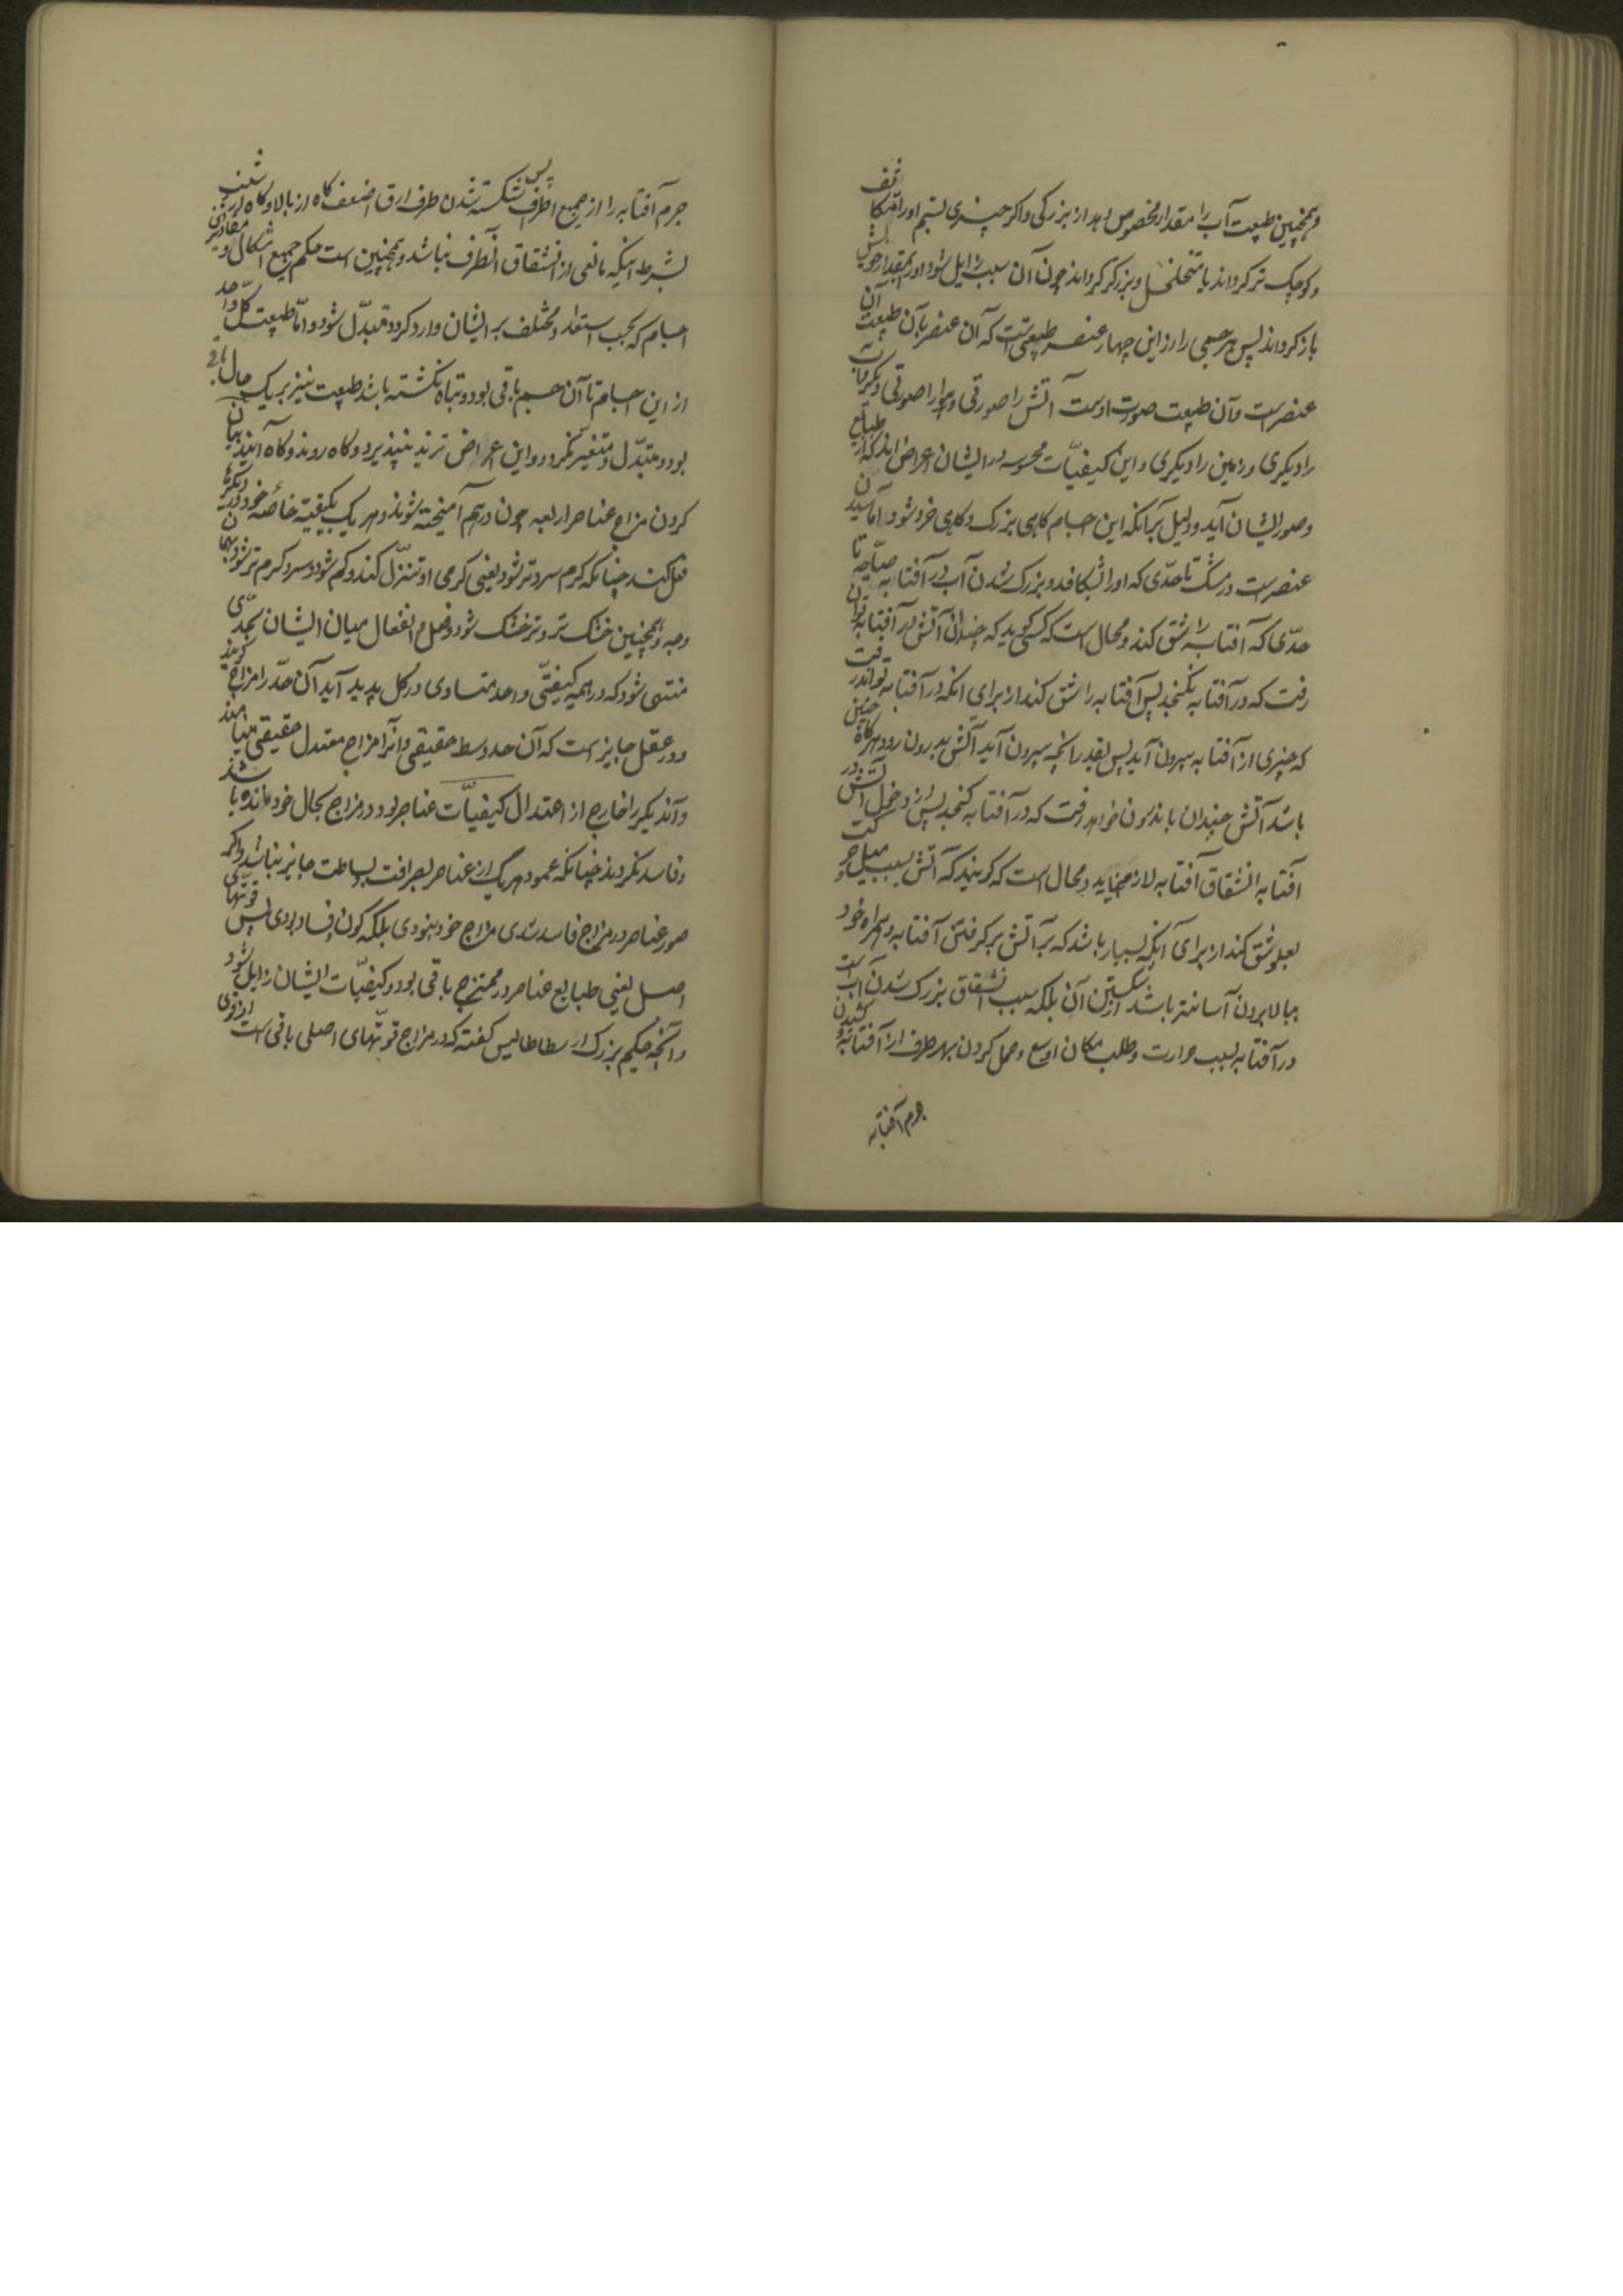 و همچنین طبیعت آب را مقدار مخصوص دهد از بزرگی و اگر چیزی بستم اورا متکاثف
و کوچک تر کرداند یا متخلخل و بزرگتر کرداند چون آن سبب زایل شود اورا بمقدار خویش
باز کرداند پس هر جسمی را از این چهار عنصر طبیعتی است که آن عنصر بآن طبیعت آن
عنصر است و آن طبیعت صورت اوست آتش را صورتی و هوا را صورتی دیگر و آب
را دیکری و زمین را دیکری و این کیفیّات محسوسه در ایشان اعراض اند که از طبایع
و صور ایشان آید و دلیل بر آنکه این اجسام کاهی بزرک و کاهی خرد شود آماسیدن
عنصر است در مشک تا حدّی که اورا بشکافد و بزرک شدن آب در آفتابه صیّاحه تا
حدّی که آفتابه را شق کند و محال است که کسی کوید که چندان آتش در آفتابه تواند
رفت که در آفتابه نکنجد پس آفتابه را شق کند از برای آنکه در آفتابه تواند رفت
که چیزی از آفتابه بیرون آید پس بقدر آنچه بیرون آید آتش بدرون رود و هرکاه چنین
باشد آتش چندان باندرون خواهد رفت که در آفتابه کنجد پس از دخول آتش در
آفتابه انشقاق آفتابه لازم نیاید و محال است که کویند که آتش بسبب میل حرکت
بعلو شق کند از برای آنکه بسیار باشد که بر آتش برکرفتن آفتابه و همراه خود
ببالا بردن آسانتر باشد از شکستن آن بلکه سبب انشقاق بزرک شدن آب است
در آفتابه بسبب حرارت و طلب مکان اوسع و حمل کردن بهر طرف از آفتابه و کشیدن
جرم آفتابه
جرم آفتابه را از جمیع اطراف پس شکسته شدن طرف ارق اضعف کاه از بالا و کاه از شیب
بشرط آنکه مانعی از انشقاق آنطرف نباشد و همچنین است حکم جمیع اشکال و مقادیر
اجسام که بحسب استعداد مختلف بر ایشان وارد کردد متبدّل شود و امّا طبیعت کلّ واحد
از این اجسام تا آن جسم باقی بود و تباه نکشته باشد طبیعت نیز بر یک حال باقی
بود و متبدّل و متغیّر نکردد و این اعراض تزید نپذیرد و کاه روند و کاه آیند بیان
کردن مزاج عناصر اربعه چون در هم آمیخته شوند و هر یک بکیفیّة خاصّه خود در دیگر
فعل کند چنانکه کرم سردتر شود یعنی کرمی او تنزّل کند و کم شود و سرد کرم تر شود بهمان
وجه و همچنین خشک تر و تر خشک شود و فعل و انفعال میان ایشان بحدّی
منتهی شود که در همه کیفیّتی واحد متساوی در کل پدید آید آن حدّ را مزاج کویند
و در عقل جایز است که آن حد وسط حقیقی و آنرا مزاج معتدل حقیقی مینامند
و آن دیکر را خارج از اعتدال کیفیّات عناصر بود و در مزاج بحال خود مانده باشند
و فاسد نکردند چنانکه عمود هر یک از عناصر بصرافت بساطت جایز نباشد و اکر
صور عناصر در مزاج فاسد شدی مزاج خود نبودی بلکه کون و فساد بودی پس قوّتهای
اصل یعنی طبایع عناصر در ممتزج باقی بود و کیفیّات ایشان زایل شود
و آنچه حکیم بزرک ارسطاطالیس کفته که در مزاج قوّتهای اصلی باقی است از قوی